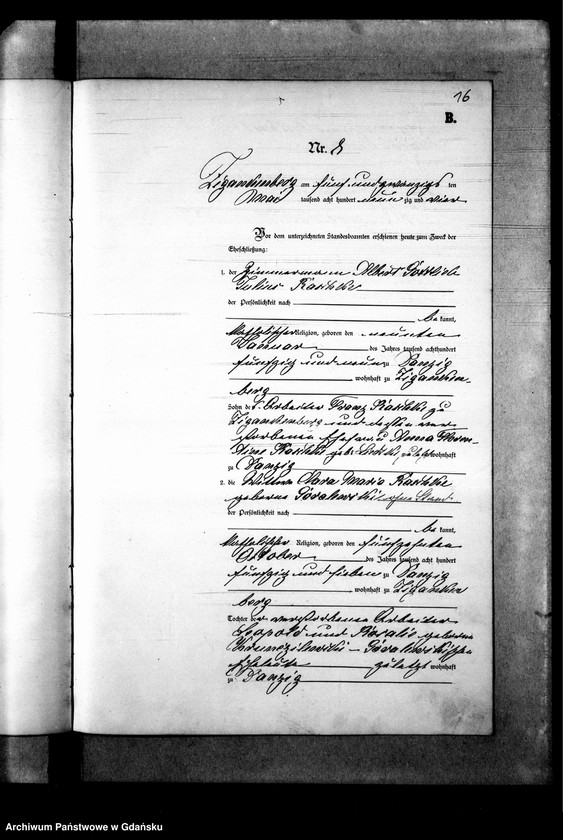 16
B.
Nr. 8
Zigankenberg am fünf und zwanzigsten
Mai tausend acht hundert neunzig und vier
Vor dem unterzeichneten Standesbeamten erschienen heute zum Zweck der
Eheschließung:
1. der Zimmermann Albert Gottlieb
Julius Raschke
der Persönlichkeit nach
bekannt,
katholischer Religion, geboren den neunten
Januar des Jahres tausend achthundert
fünfzig und neun zu Danzig
wohnhaft zu Ziganken-
berg
Sohn des Arbeiter Franz Raschke zu
Zigankenberg und dessen ver-
storbenen Ehefrau Anna
Raschke geb. zuletzt wohnhaft
zu Danzig
2. die Wittwe Clara Maria Raschke
geborne ohne Stand
der Persönlichkeit nach
bekannt,
katholischer Religion, geboren den fünfzehnten
Oktober des Jahres tausend acht hundert
fünfzig und sieben zu Danzig
wohnhaft zu Ziganken
berg
Tochter der verstorbenen Arbeiter
Leopold und Rosalie geborene
Eheleute zuletzt wohnhaft
zu Danzig
Archiwum Państwowe w Gdańsku